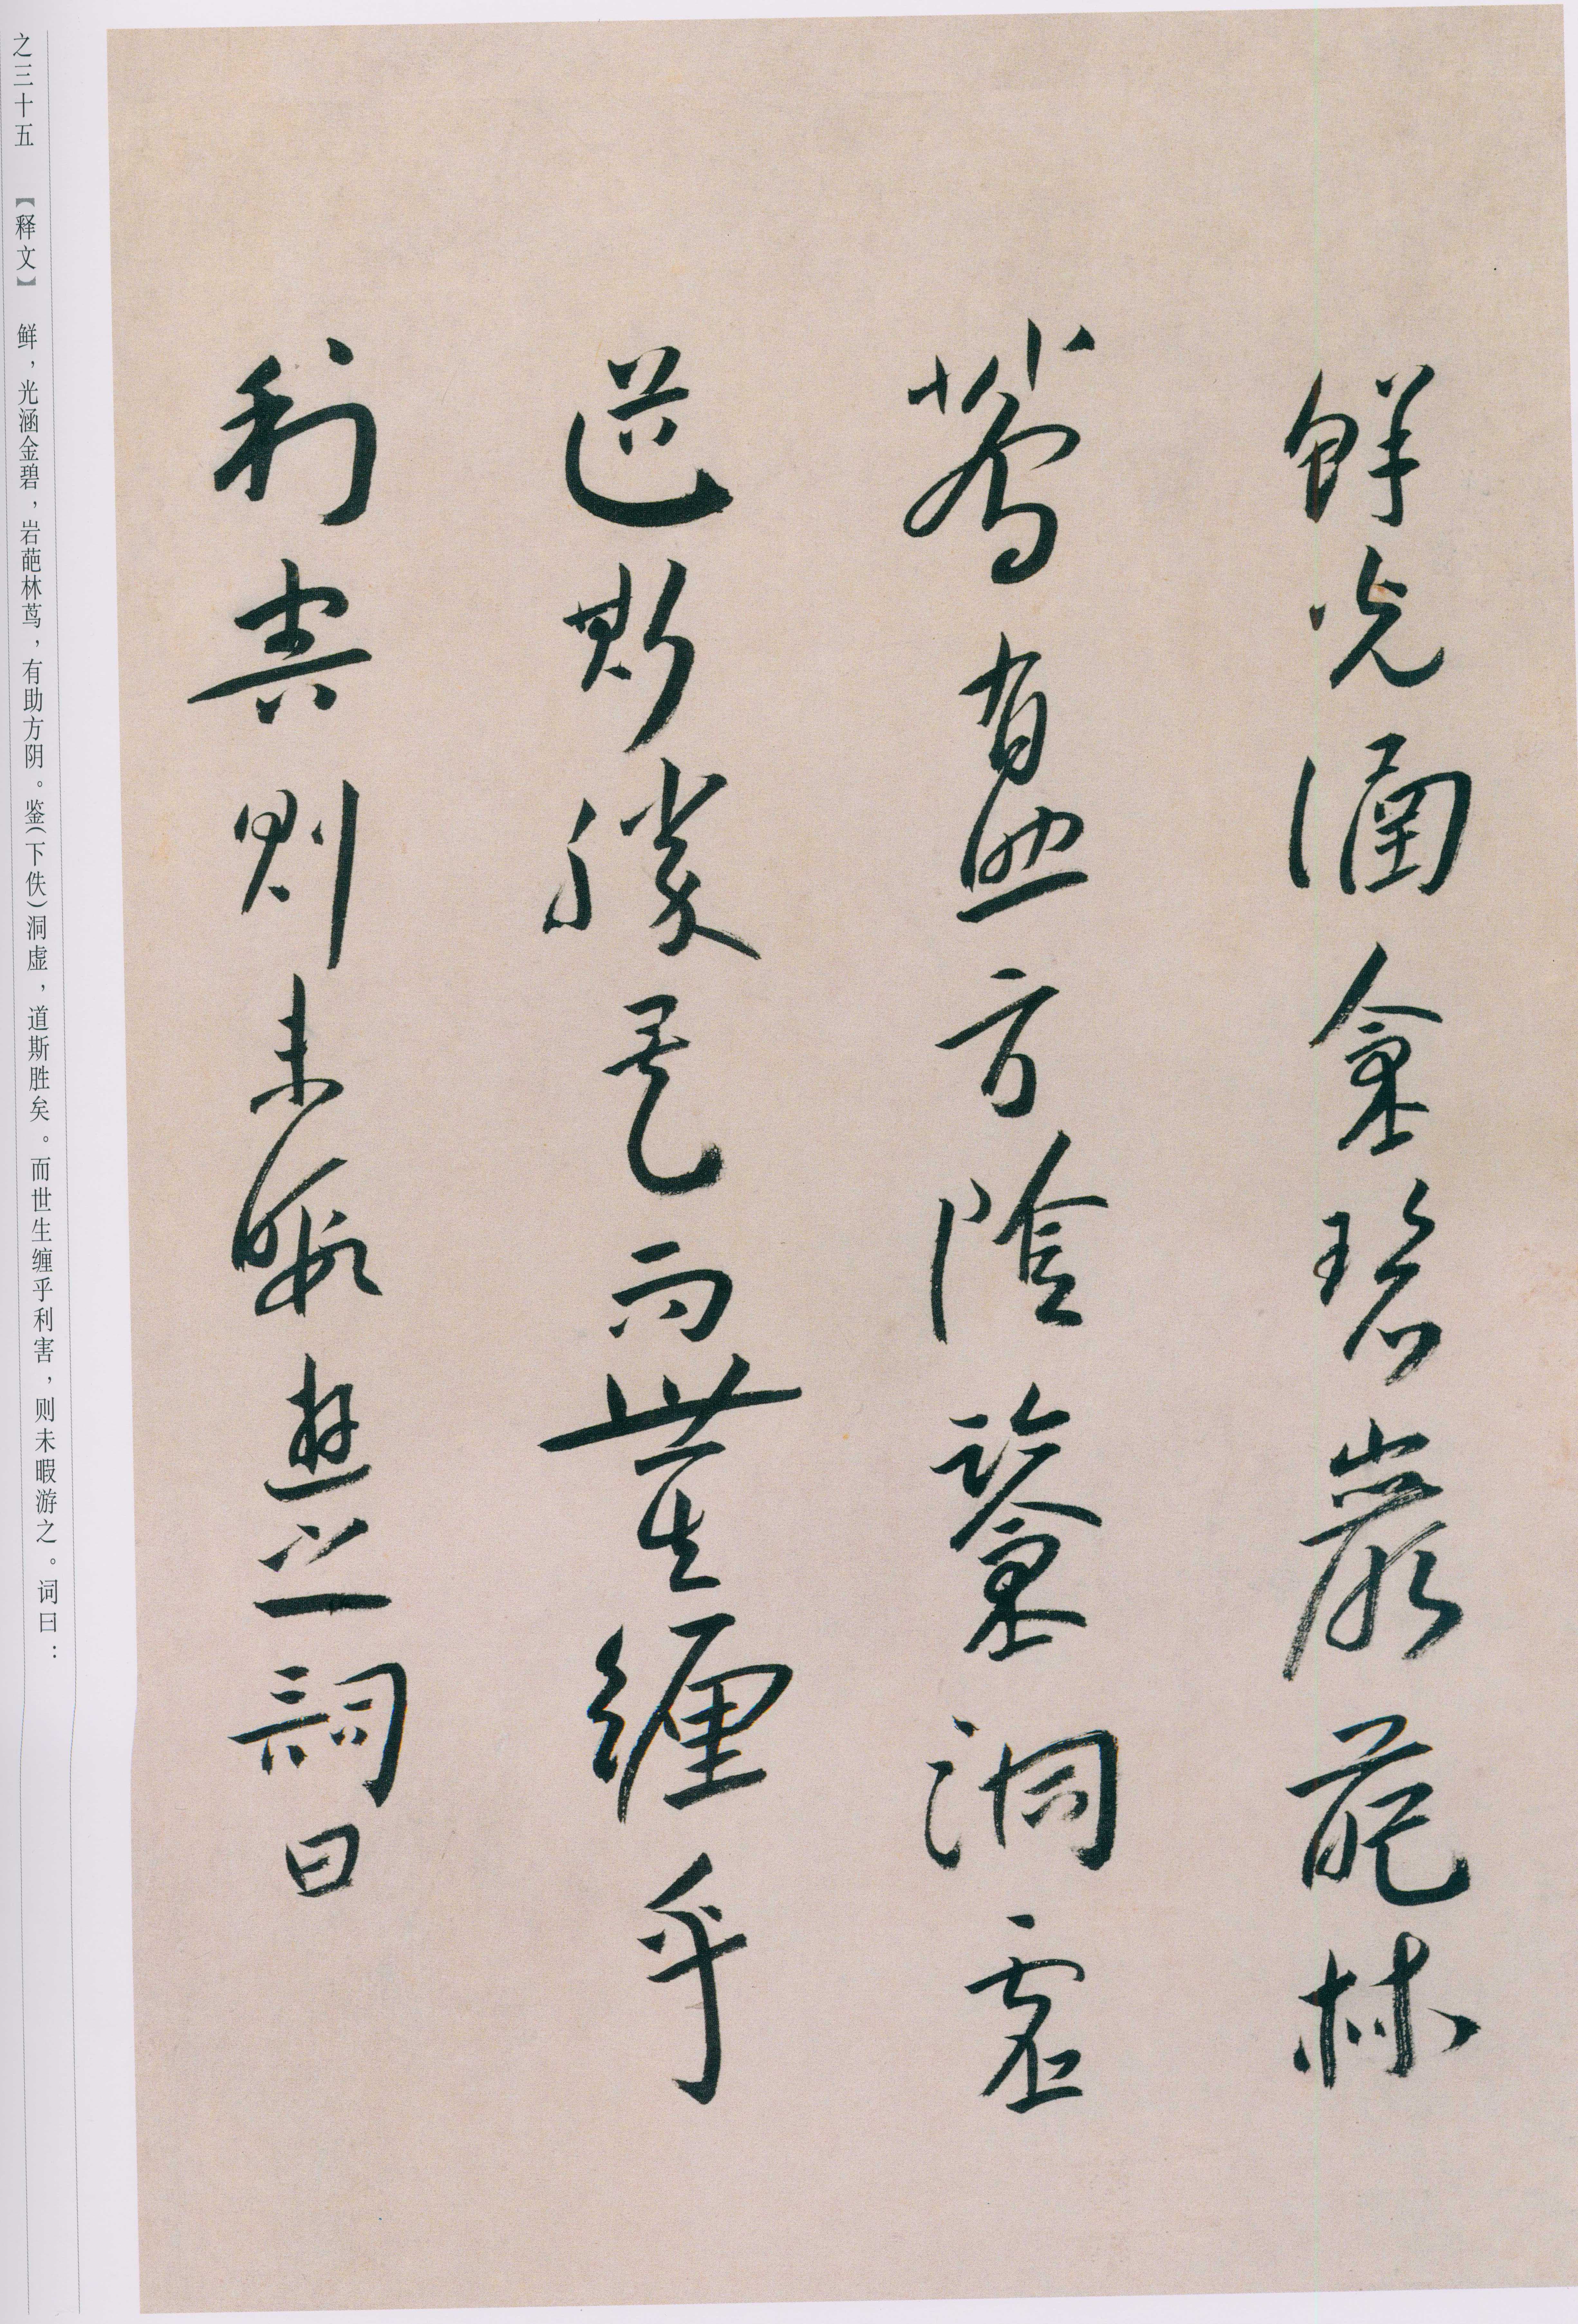 鮮光涵金碧巖葩林
蔦有助方陰鑒洞虛
道斯勝矣而世生纏乎
利害則未暇遊之詞曰
之三十五 【释文】 鲜，光涵金碧，岩葩林茑，有助方阴。鉴(下佚)洞虚，道斯胜矣。而世生缠乎利害，则未暇游之。词曰：